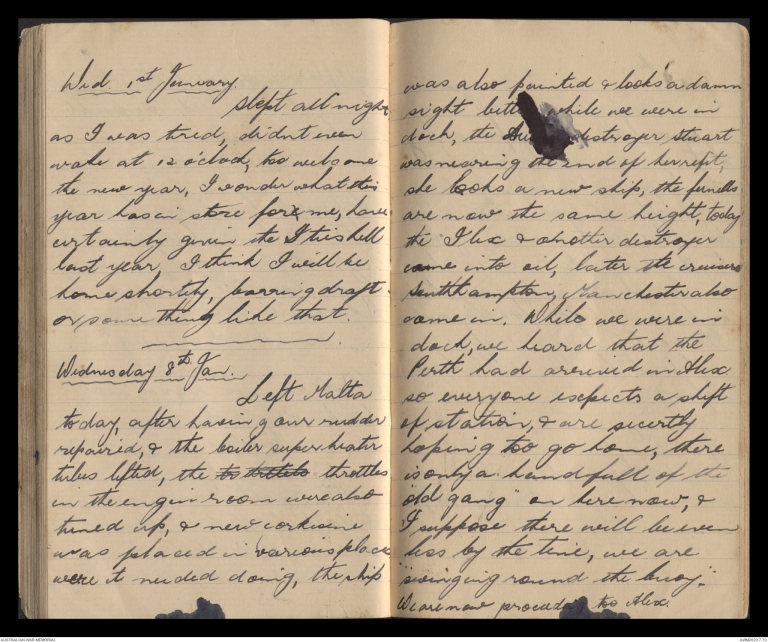 Wed. 1st January.
slept all night
as I was tired, didnt even
wake at 12 o'clock, too welcome
the new year, I wonder what this
year has in store for me, have
certainly given the I ties hell
last year, I think I will be
home shortly, barring draft
or something like that.
Wednesday 8th Jan.
Left Malta
today, after having our rudder
repairied, & the boiler super heater
tubes lifted, the throttles
in the engin room were also
tuned up, & new corkisine
was placed in various places
were it needed doing, the ship
was also painted & looks a damn
sight better while we were in
dock, the destroyer Stuart
was nearing the end of her refit,
she looks a new ship, the funells
are now the same height, today
the Ilex & another destroyer
came into oil, later the cruisers
Southhampton, Manchester also
came in. While we were in
dock, we heard that the
Perth had arrived in Alex
so everyone expects a shift
of station, & are secertly
hoping too go home, there
is only a handfull of the
"old gang" on here now, &
I suppose there will be even
less by the time, we are
"swinging round the buoy".
We are now proceeding too Alex.
AUSTRALIAN WAR MEMORIAL